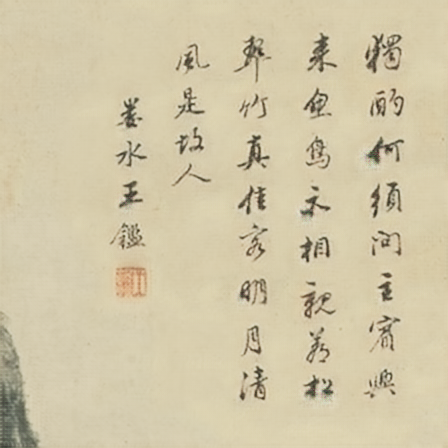 獨酌何須問主賓興
來魚鳥亦相親蒼松
翠竹真佳客明月清
風是故人
婁水王鑑